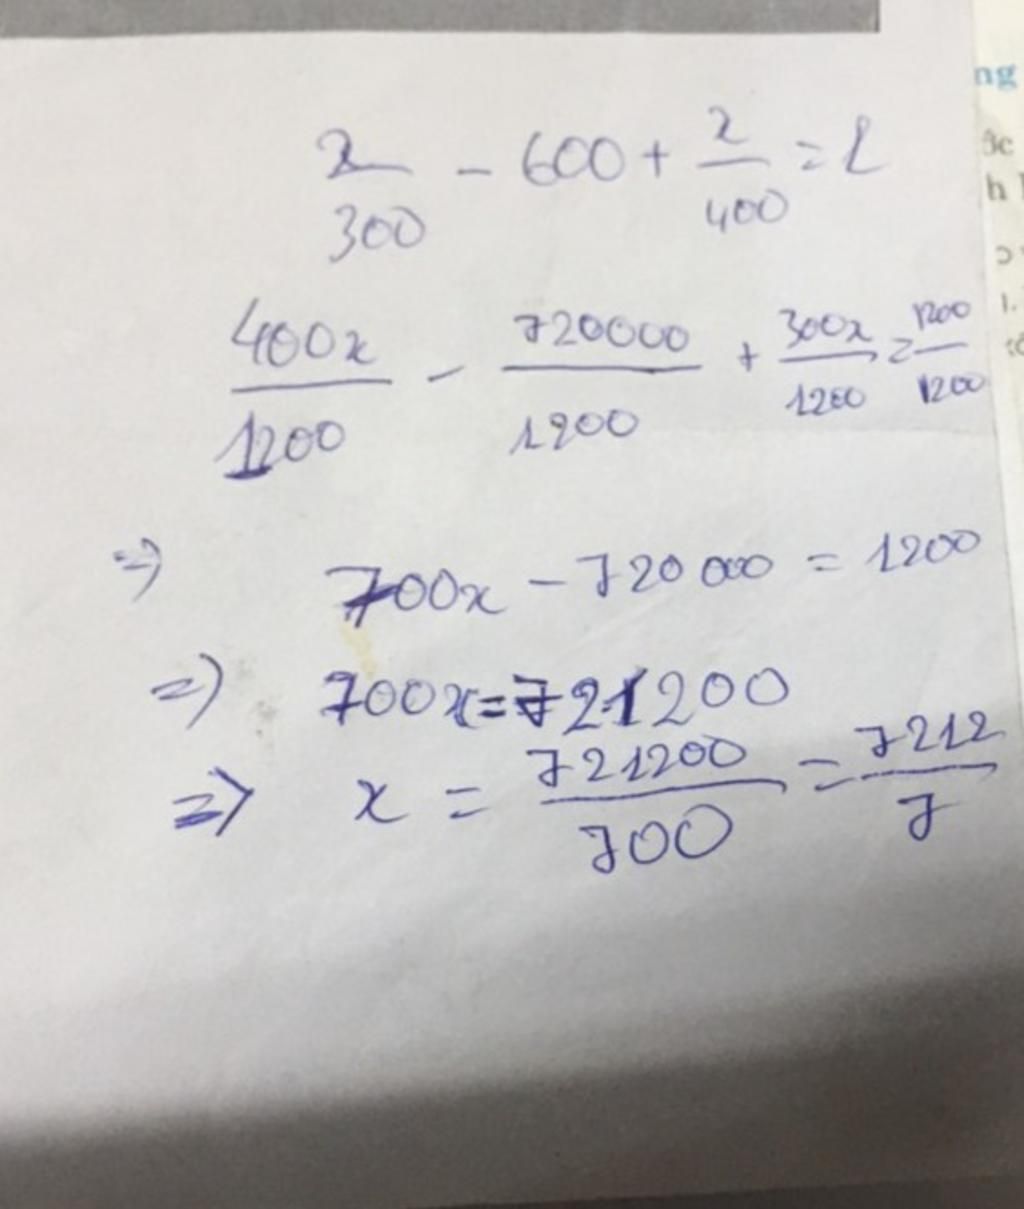 x/300 - 600 + x/400 = 1
400x/1200 - 720000/1200 + 300x/1200 = 1200/1200
=> 700x - 720000 = 1200
=> 700x = 721200
=> x = 721200/700 = 7212/7
ng